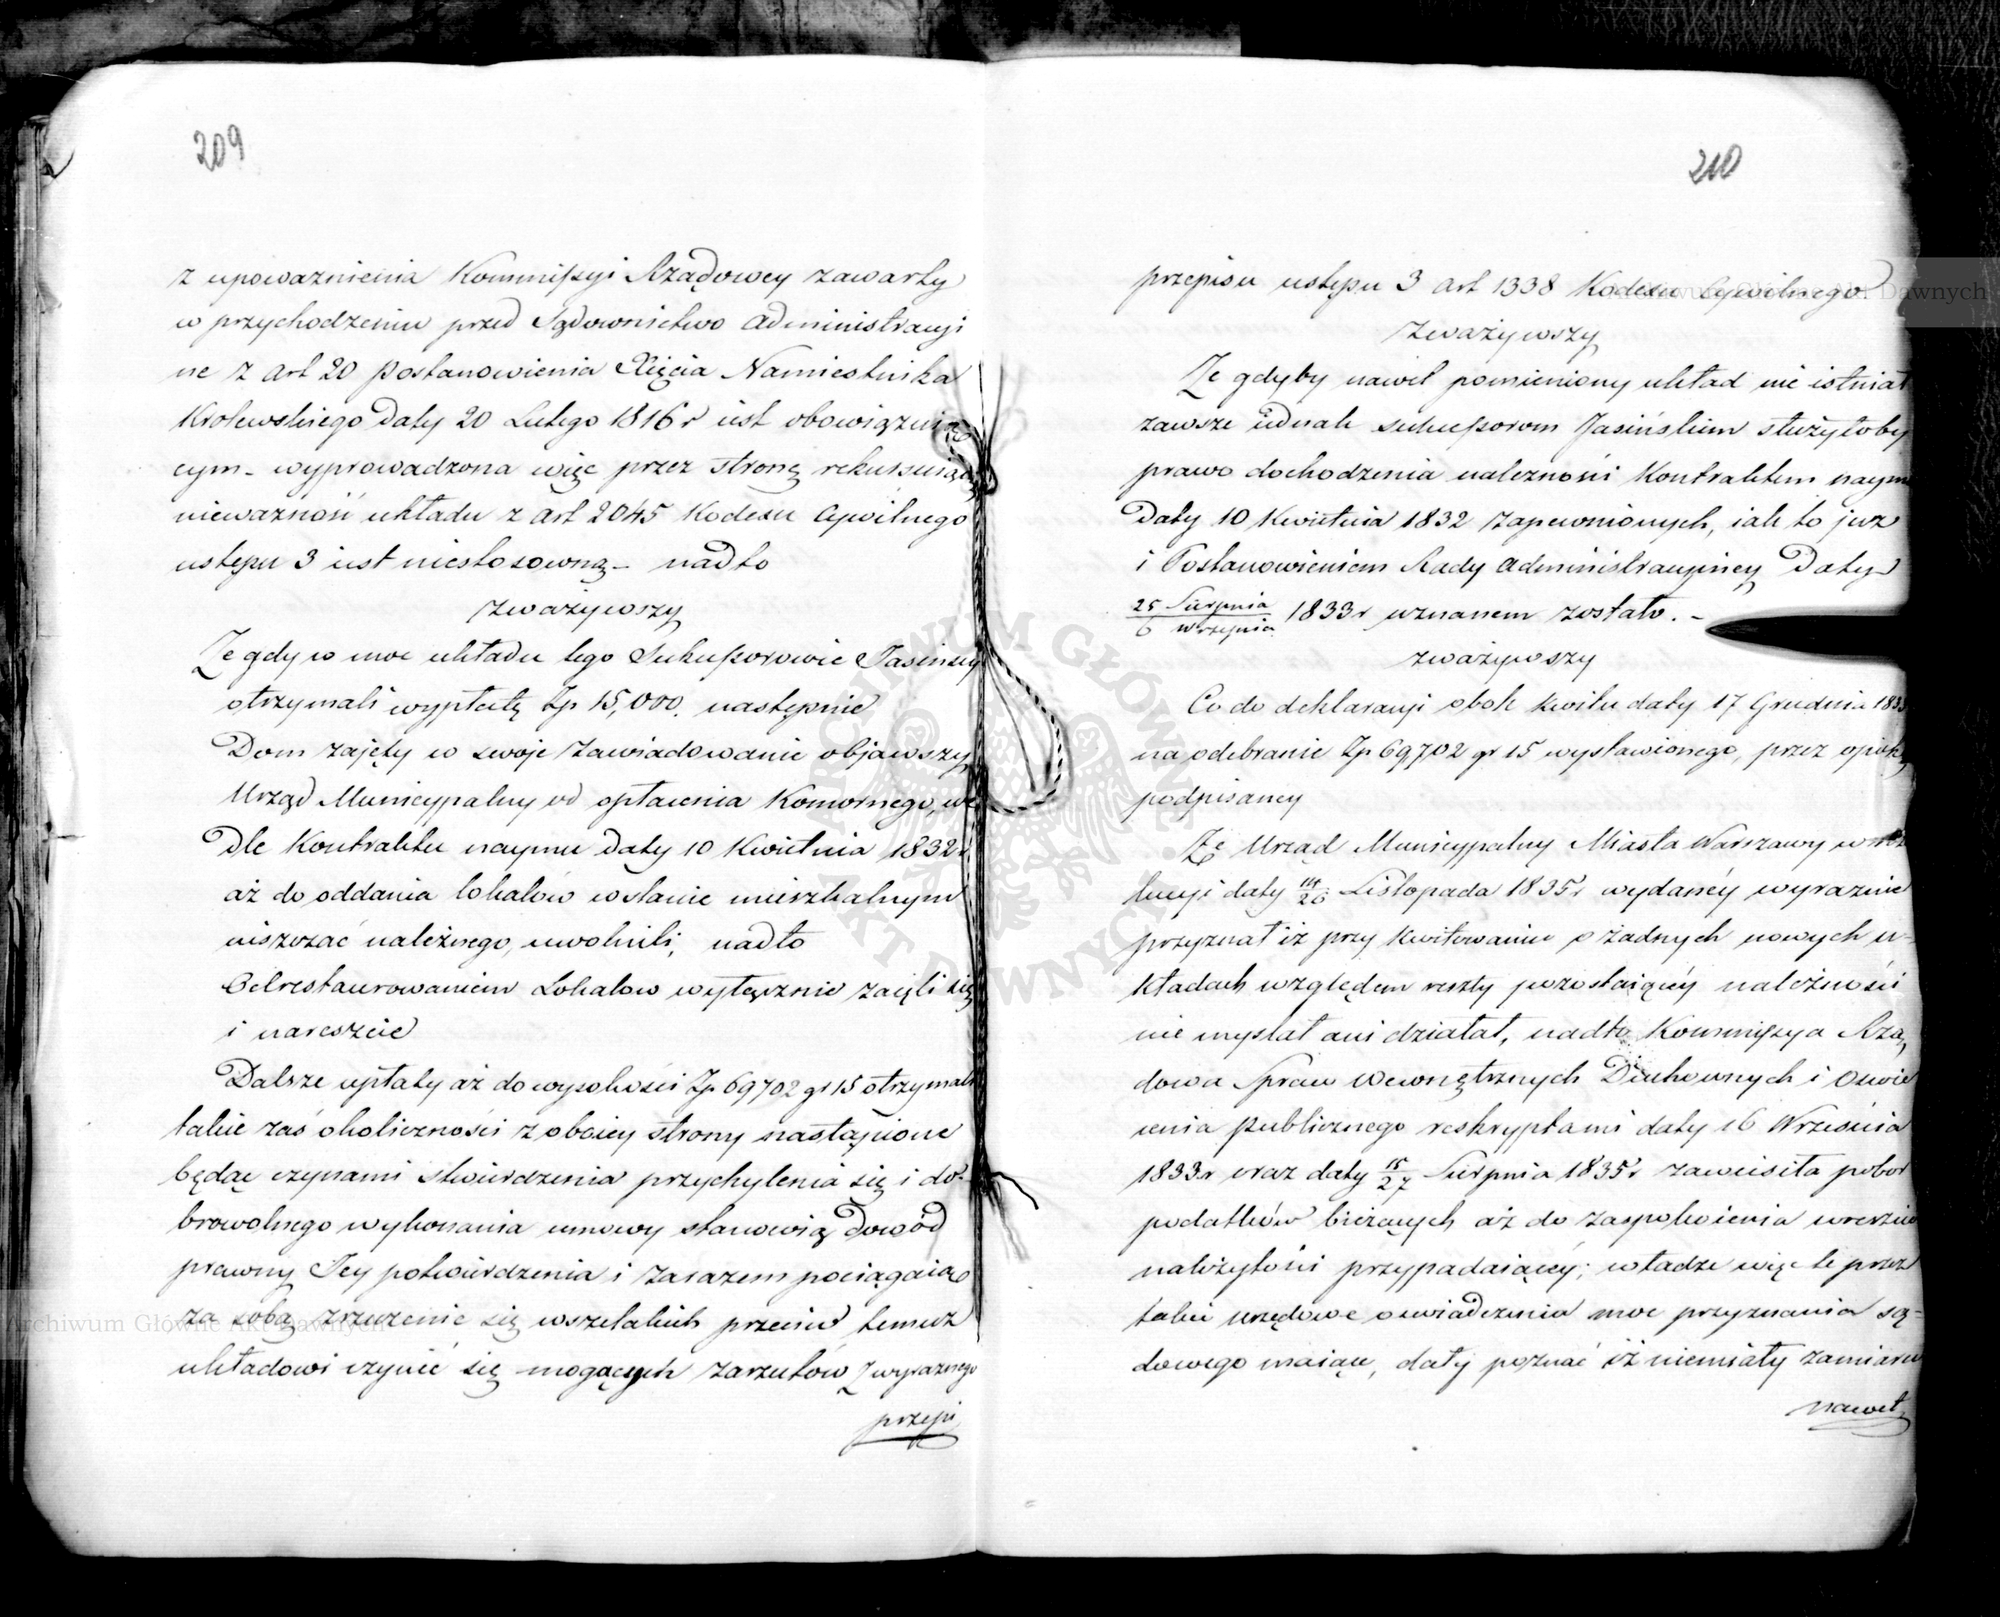 209
z upoważnienia Kommissyi Rządowey zawarty
w przychodzeniu przed Sądownictwo Administracyi
ne z art 20 postanowienia Xięcia Namiestnika
Krolewskiego Daty 20 Lutego 1816 r iest obowiązuią
cym - wyprowadzona więc przez stronę rekursuiącą
nieważność układu z art 2045 Kodexu Cywilnego
ustępu 3 iest niestosowną - nadto
zważywszy
Że gdy w moc układu tego Sukcessorowie Jasińscy
otrzymali wypłatę Zp 15,000. następnie
Dom zajęty w swoje zawiadowanie objąwszy
Urząd Municypalny od opłacenia Komornego, we
dle Kontraktu naymu Daty 10 Kwietnia 1832 r
aż do oddania lokalów w stanie mieszkalnym
uiszczać należnego, uwolnili, nadto
Odrestaurowaniem Lokalow wyłącznie zaięli się
i nareszcie
Dalsze wpłaty aż do wysokości Zp 69702 gr 15 otrzymali
takie zaś okoliczności z oboiey strony nastąpione
będąc czynami stwierdzenia przychylenia się i do-
browolnego wykonania umowy stanowią Dowód
prawny Jey potwierdzenia i zarazem pociągaią
za sobą zrzeczenie się wszelakich przeciw temuż
układowi czynić się mogących zarzutów z wyraźnego
przepi
210
przepisu ustępu 3 art 1338 Kodexu Cywilnego
zważywszy
Że gdyby nawet pomieniony układ nie istniał
zawsze iednak sukcessorom Jasińskim służyłoby
prawo dochodzenia należności Kontraktem naymu
Daty 10 Kwietnia 1832 zapewnionych, iak to już
i Postanowieniem Rady Administracyiney Daty
25 Sierpnia / 6 Września 1833 r uznanem zostało. -
zważywszy
Co do deklaracyi obok kwitu daty 17 Grudnia 1833
na odebranie Zp 69702 gr 15 wystawionego, przez opiekę
podpisaney
Że Urząd Municypalny Miasta Warszawy w rezo
lucyi daty 14/26 Listopada 1835 r wydaney wyraźnie
przyznał iż przy kwitowaniu o żadnych nowych u-
kładach względem reszty pozostaiącey należności
nie myslał ani działał, nadto Kommissya Rzą
dowa Spraw Wewnętrznych Duchownych i Oświe
cenia Publicznego reskryptami daty 16 Września
1833 r oraz daty 15/27 Sierpnia 1835 r zawiesiła pobor
podatków bieżących aż do zaspokoienia wreszcie
należytości przypadaiącey; władze więc te przez
takie urzędowe oswiadczenia moc przyznania są-
dowego maiące, dały poznać iż niemiały zamiaru
nawet
Archiwum Główne Akt Dawnych
ARCHIWUM GŁÓWNE AKT DAWNYCH